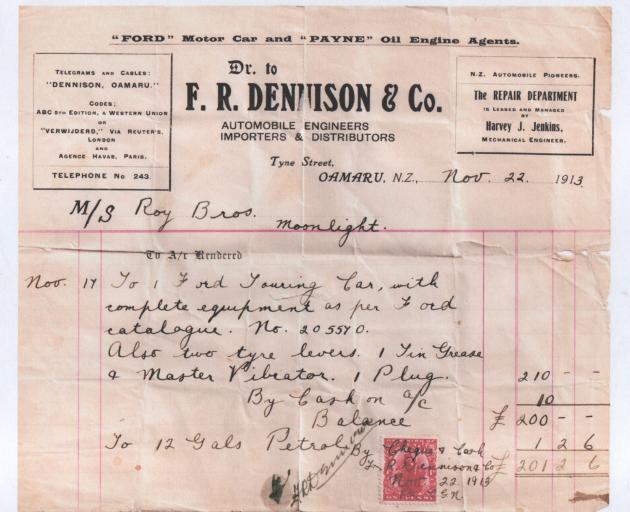 "FORD" Motor Car and "PAYNE" Oil Engine Agents.
TELEGRAMS AND CABLES:
"DENNISON, OAMARU."
CODES:
ABC 5TH EDITION, & WESTERN UNION
OR
"VERWIJDERD," VIA REUTER'S,
LONDON
AND
AGENCE HAVAS, PARIS.
TELEPHONE No 243.
Dr. to
F. R. DENNISON & Co.
AUTOMOBILE ENGINEERS
IMPORTERS & DISTRIBUTORS
Tyne Street,
OAMARU, N.Z., Nov. 22. 1913
N.Z. AUTOMOBILE PIONEERS.
The REPAIR DEPARTMENT
IS LEASED AND MANAGED
BY
Harvey J. Jenkins,
MECHANICAL ENGINEER.
M/S Roy Bros.
Moonlight.
To A/c Rendered
Nov. 17 To 1 Ford Touring Car, with
complete equipment as per Ford
catalogue. No. 205570.
Also two tyre levers. 1 Tin Grease
& Master Vibrator. 1 Plug. 210 - -
By Cash on a/c 10
Balance £ 200 - -
To 12 Gals Petrol 1 2 6
£ 201 2 6
By Cheque & Cash
F. R. Dennison & Co
Nov. 22 1913